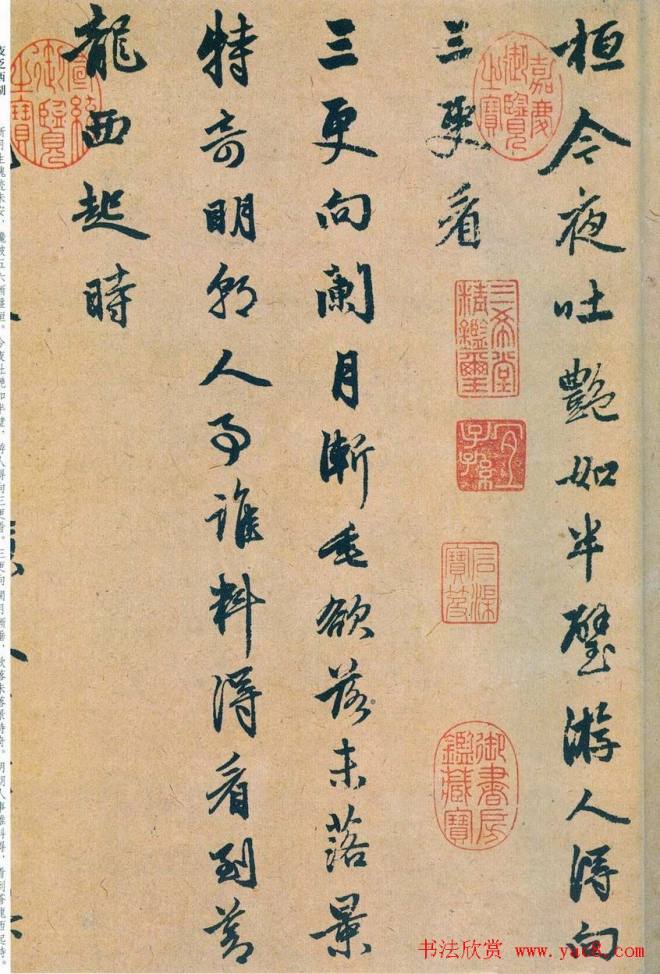 桓今夜吐艷如半璧游人得向
三更看
三更向闌月漸垂欲落未落景
特奇明朝人事誰料得看到蒼
龍西起時
嘉慶御覽之寶
三希堂精鑑璽
宜子孫
石渠寶笈
御書房鑑藏寶
宣統御覽之寶
书法欣赏 www.yac8.com